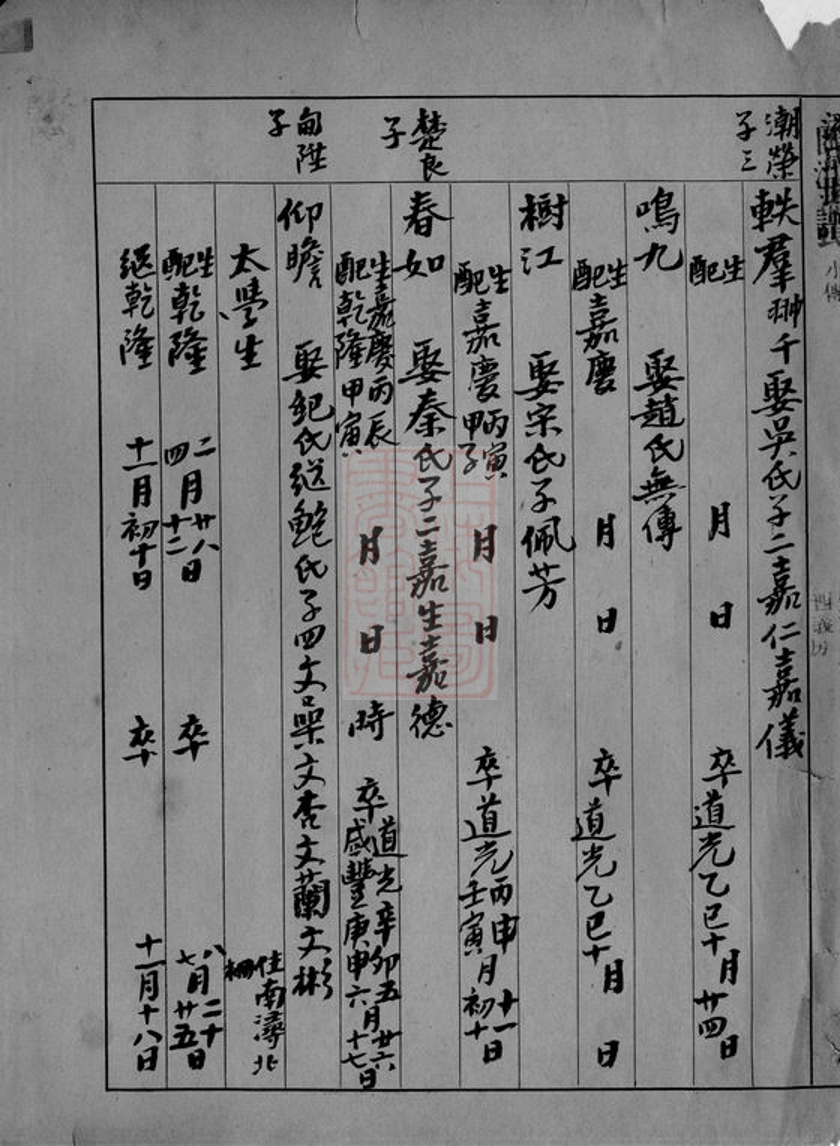 潮榮子三
軼羣 翀千 娶吳氏子二嘉仁嘉儀
生 配 月 日 卒道光乙巳十月廿四日
鳴九 娶趙氏無傳
生 配 嘉慶 月 日 卒道光乙巳十月 日
樹江 娶宋氏子佩芳
生 配 嘉慶 丙寅 甲子 月 日 卒道光 丙申 壬寅 月 十一 初十 日
楚良子
春如 娶秦氏子二嘉生嘉德
生嘉慶丙辰 配乾隆甲寅 月 日 時 卒 道光辛卯五月廿六 咸豐庚申六月十七日
甸陞子
仰瞻 娶紀氏繼鮑氏子四文杲文杏文蘭文彬
太學生 住南潯北柵
生 配 乾隆 二 四 月 廿八 十二 日 卒 八 七 月 二十 廿五 日
繼乾隆 十一月初十日 卒 十一月十八日